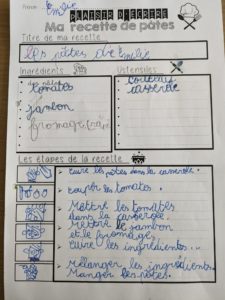 Prénom : Emilie
PLAISIR D'ÉCRIRE
Ma recette de pâtes
Titre de ma recette
Les pâtes de Emilie
Ingrédients
Ustensiles
des pâtes
tomates
jambon
fromage
couteau
casserole
Les étapes de la recette
cuire les pâtes dans la casserole.
couper les tomates.
Mettre les tomates
dans la casserole.
Mettre le jambon
et le fromage.
Cuire les ingrédients.
Mélanger les ingrédients.
Manger les pâtes.